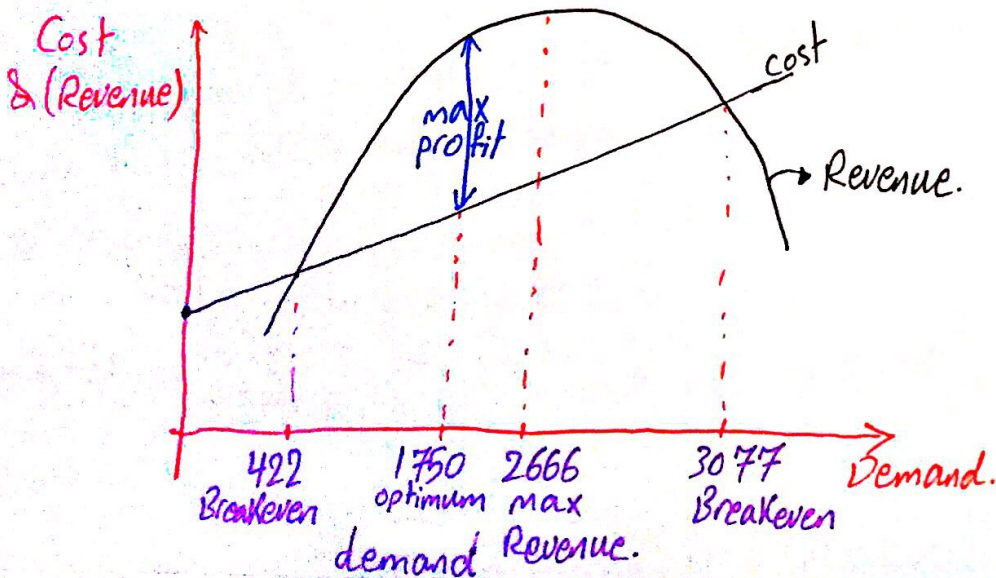 Cost
& (Revenue)
max
profit
cost
Revenue.
422
Breakeven
1750
optimum
demand
2666
max
Revenue.
3077
Breakeven
Demand.